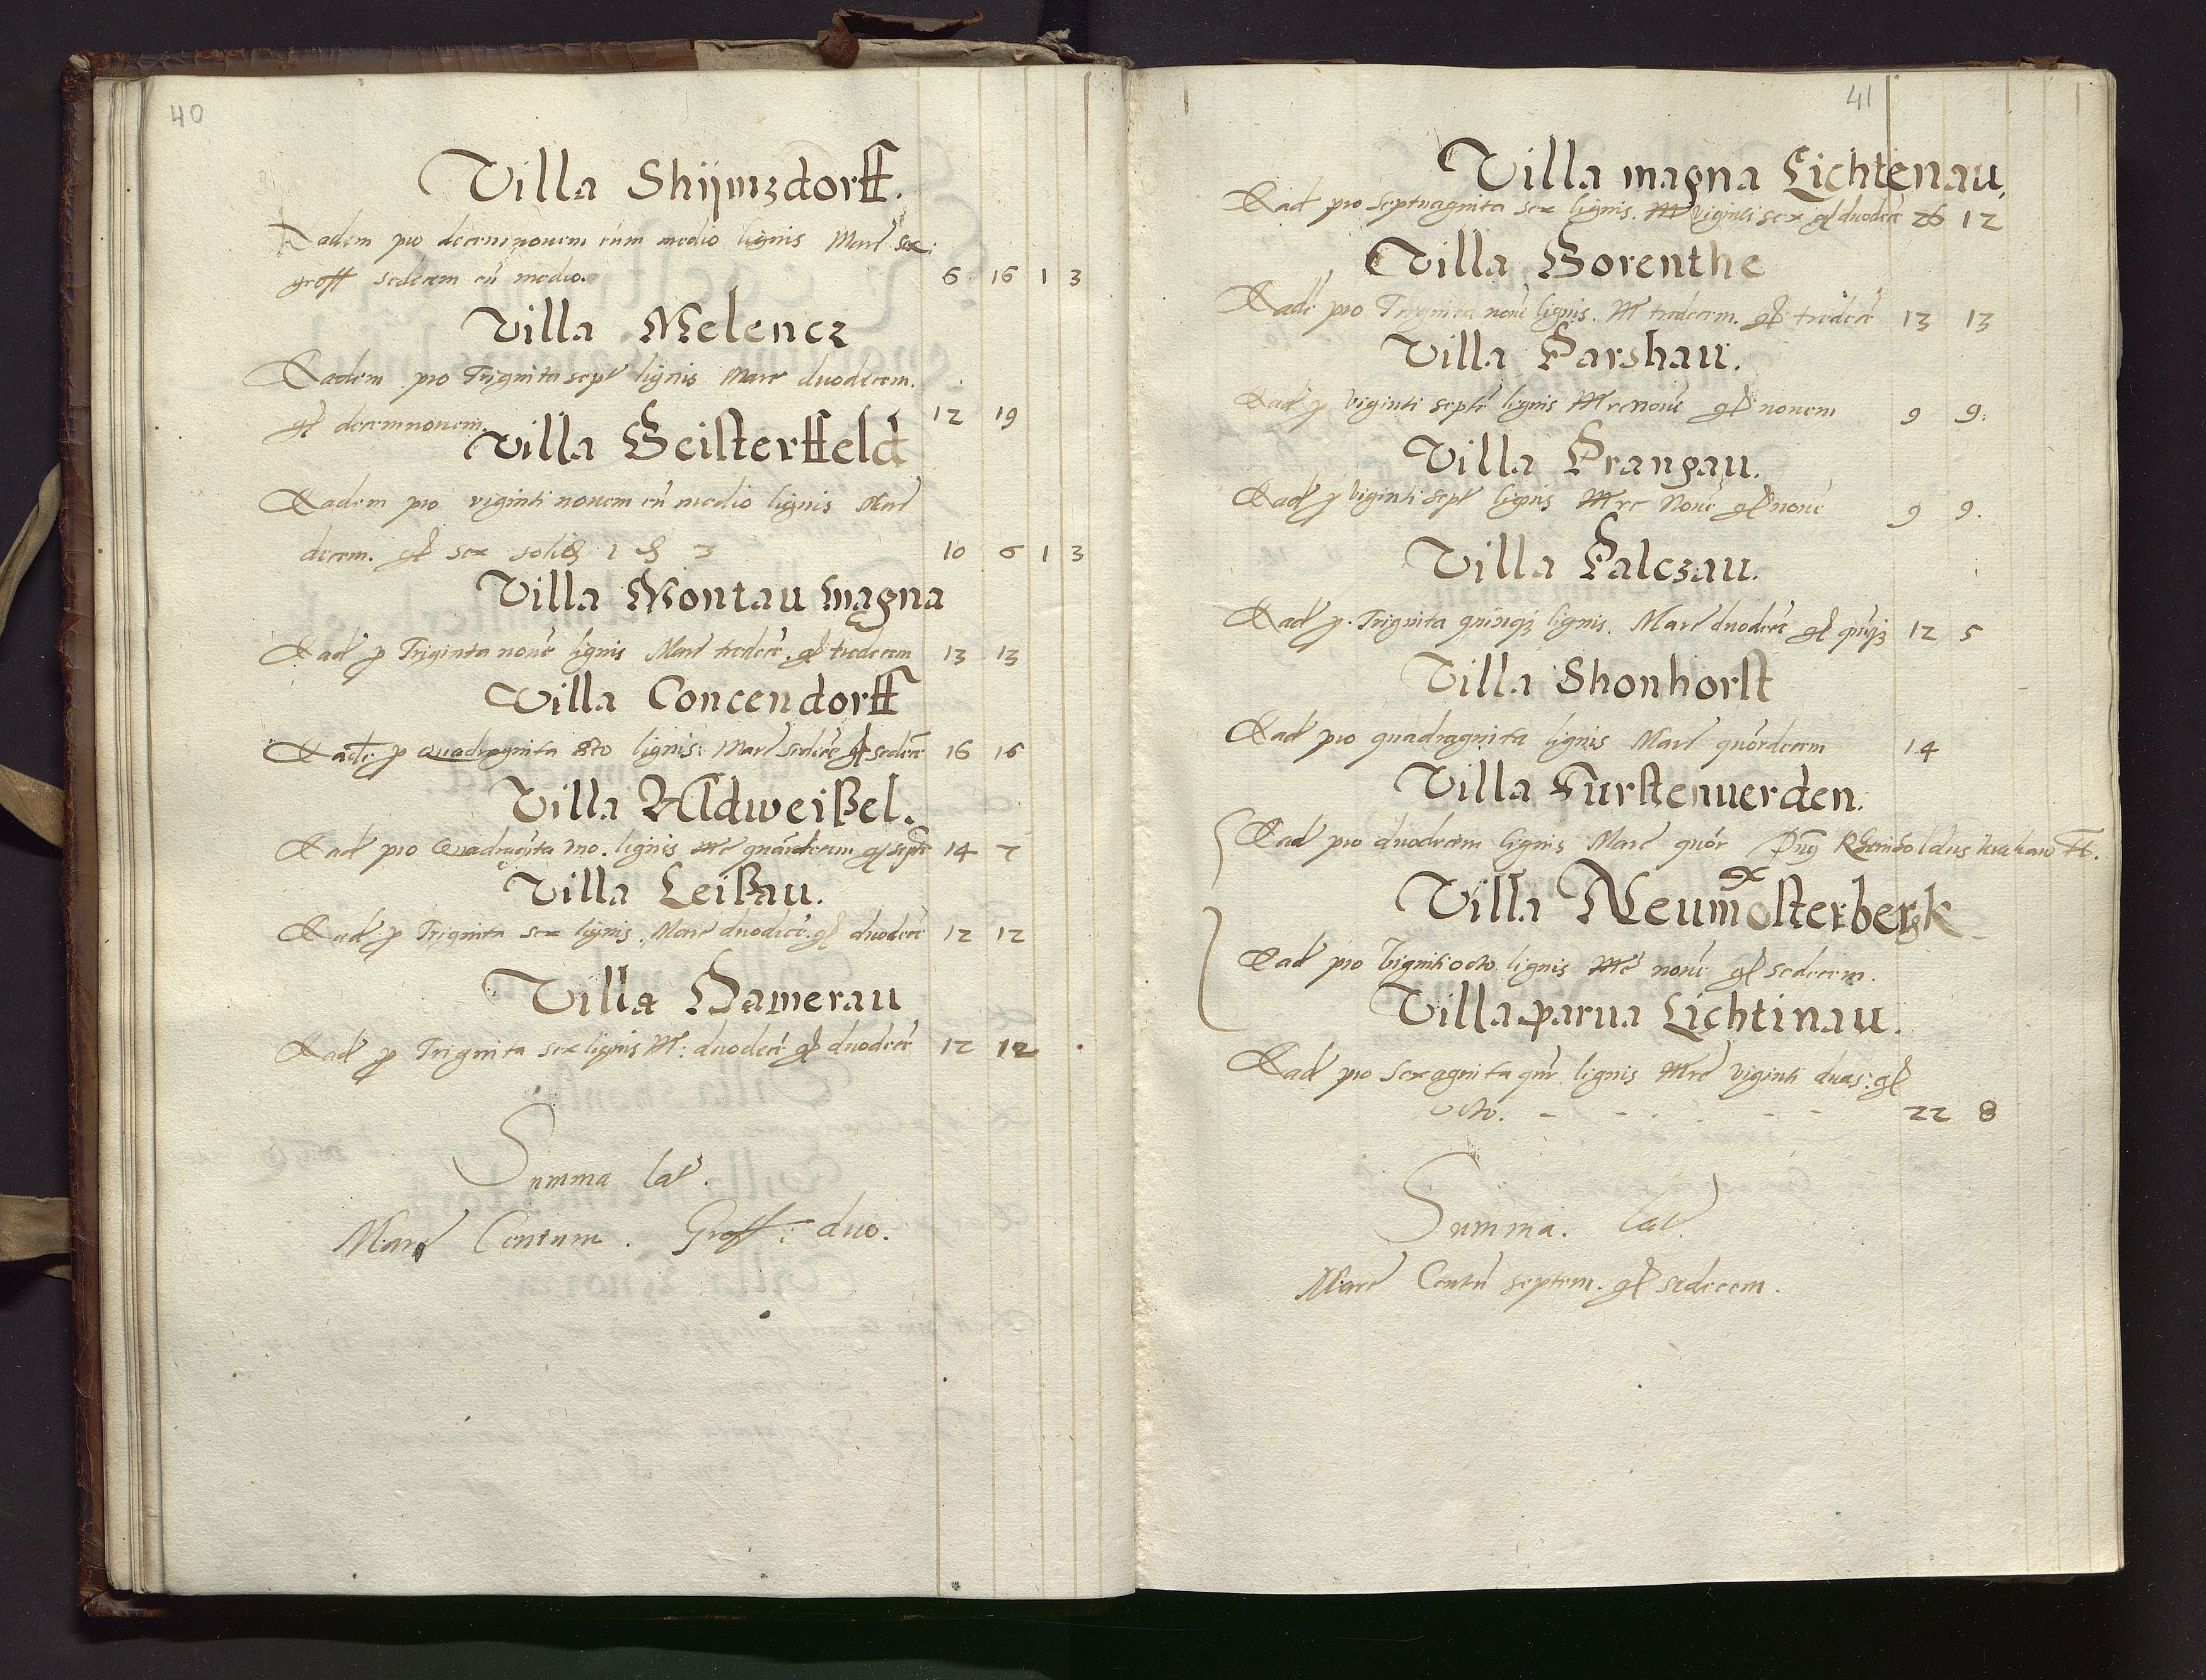 40
Villa Shÿmzdorff.
Eadem pro decemnouem cum medio lignis Marc sex:
groff sedecem cu medio. 6 16 1 3
Villa Melencz
Eadem pro Triginta sept lignis Marc duodecem.
gl decemnouem. 12 19
Villa Geisterffeld
Eadem pro viginti nouem cu medio lignis Marc
decem. gl sex solid 1 3 10 6 1 3
Villa Montau magna
Ead p Triginta noue lignis Marc tredece. gl tredecem 13 13
Villa Concendorff
Eade p Quadraginta 8to lignis: Marc sedece gl sedece 16 16
Villa Aldweißel.
Ead pro Quadragita vno. lignis Mrc quardecem gl septe 14 7
Villa Leißau.
Ead p Triginta sex lignis. Marc duodece. gl duodece 12 12
Villa Damerau
Ead p Triginta sex lignis M: duodece gl duodece 12 12
Summa lat.
Marc Centum. Groff: duo.
41
Villa magna Lichtenau.
Ead pro septuaginta sex lignis. M viginti sex gl duodece 26 12
Villa Gorenthe
Ead pro Triginta noue lignis. M tredecem. gl tredece 13 13
Villa Parshau.
Ead p viginti septe lignis Mrc noue gl nouem 9 9.
Villa Prangau.
Ead p viginti sept lignis Mrc Noue gl noue 9 9.
Villa Palczau.
Ead p. Triginta quinqz lignis. Marc duodece gl quiqz 12 5
Villa Shonhorst
Ead pro quadraginta lignis Marc quordecem 14
Villa Furstenuerden.
Ead pro duodecem lignis Marc quor Dns Rheinholdus
Villa Neumosterbergk
Ead pro viginti octo lignis Mrc noue gl sedecem.
Villa parua Lichtinau.
Ead pro sexaginta qur lignis Mrc viginti duas: gl
octo. - - - - 22 8
Summa. lat.
Marc Centu septem. gl sedecem.